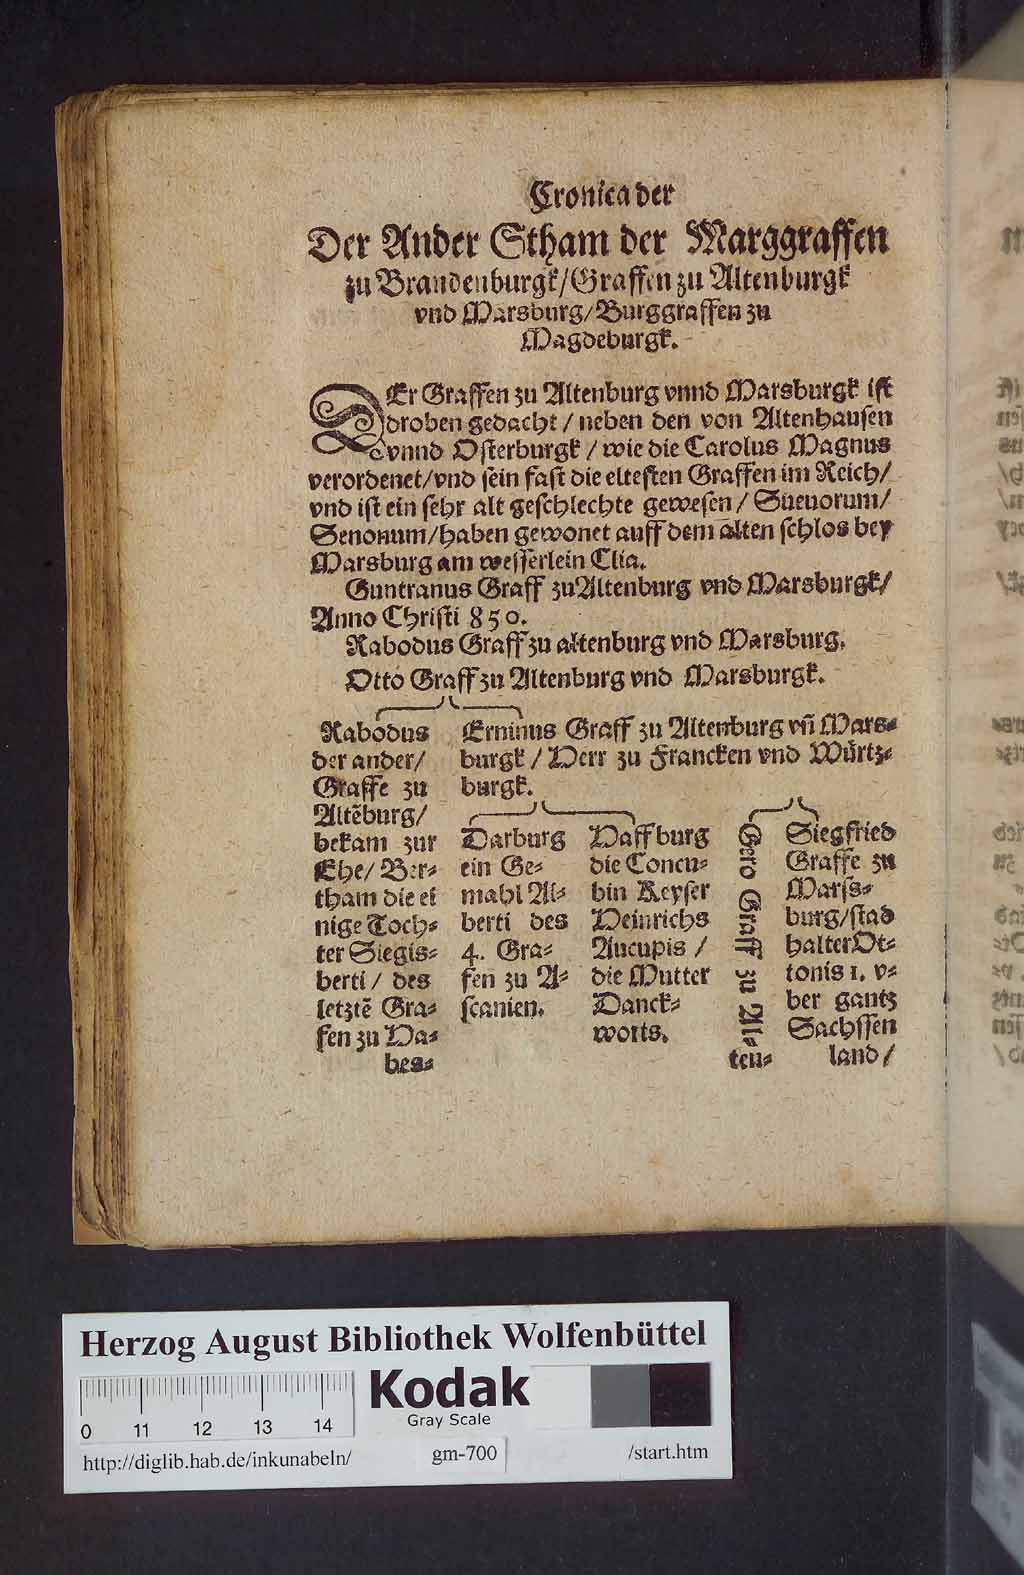 Cronica der
Der Ander Stham der Marggraffen
zu Brandenburgk/Graffen zu Altenburgk
vnd Marsburg/Burggraffen zu
Magdeburgk.
DEr Graffen zu Altenburg vnnd Marsburgk ist
droben gedacht / neben den von Altenhausen
vnnd Osterburgk / wie die Carolus Magnus
verordenet/vnd sein fast die eltesten Graffen im Reich/
vnd ist ein sehr alt geschlechte gewesen / Sueuorum/
Senonum/haben gewonet auff dem alten schlos bey
Marsburg am wesserlein Clia.
Guntranus Graff zuAltenburg vnd Marsburgk/
Anno Christi 850.
Rabodus Graff zu altenburg vnd Marsburg.
Otto Graff zu Altenburg vnd Marsburgk.
Rabodus
der ander/
Graffe zu
Altẽburg/
bekam zur
Ehe/ Ber⸗
tham die ei
nige Toch⸗
ter Siegis⸗
berti / des
letztẽ Gra⸗
fen zu Ha⸗
bes⸗
Erninus Graff zu Altenburg vñ Mars⸗
burgk / Herr zu Francken vnd Würtz⸗
burgk.
Harburg
ein Ge⸗
mahl Al⸗
berti des
4. Gra⸗
fen zu A⸗
scanien.
Haffburg
die Concu⸗
bin Keyser
Heinrichs
Aucupis /
die Mutter
Danck⸗
worts.
Gero Graff zu Al⸗
ten⸗
Siegfried
Graffe zu
Mars⸗
burg/stad
halterOt⸗
tonis 1. v⸗
ber gantz
Sachssen
land /
Herzog August Bibliothek Wolfenbüttel
Kodak
Gray Scale
0 11 12 13 14
http://diglib.hab.de/inkunabeln/
gm-700
/start.htm